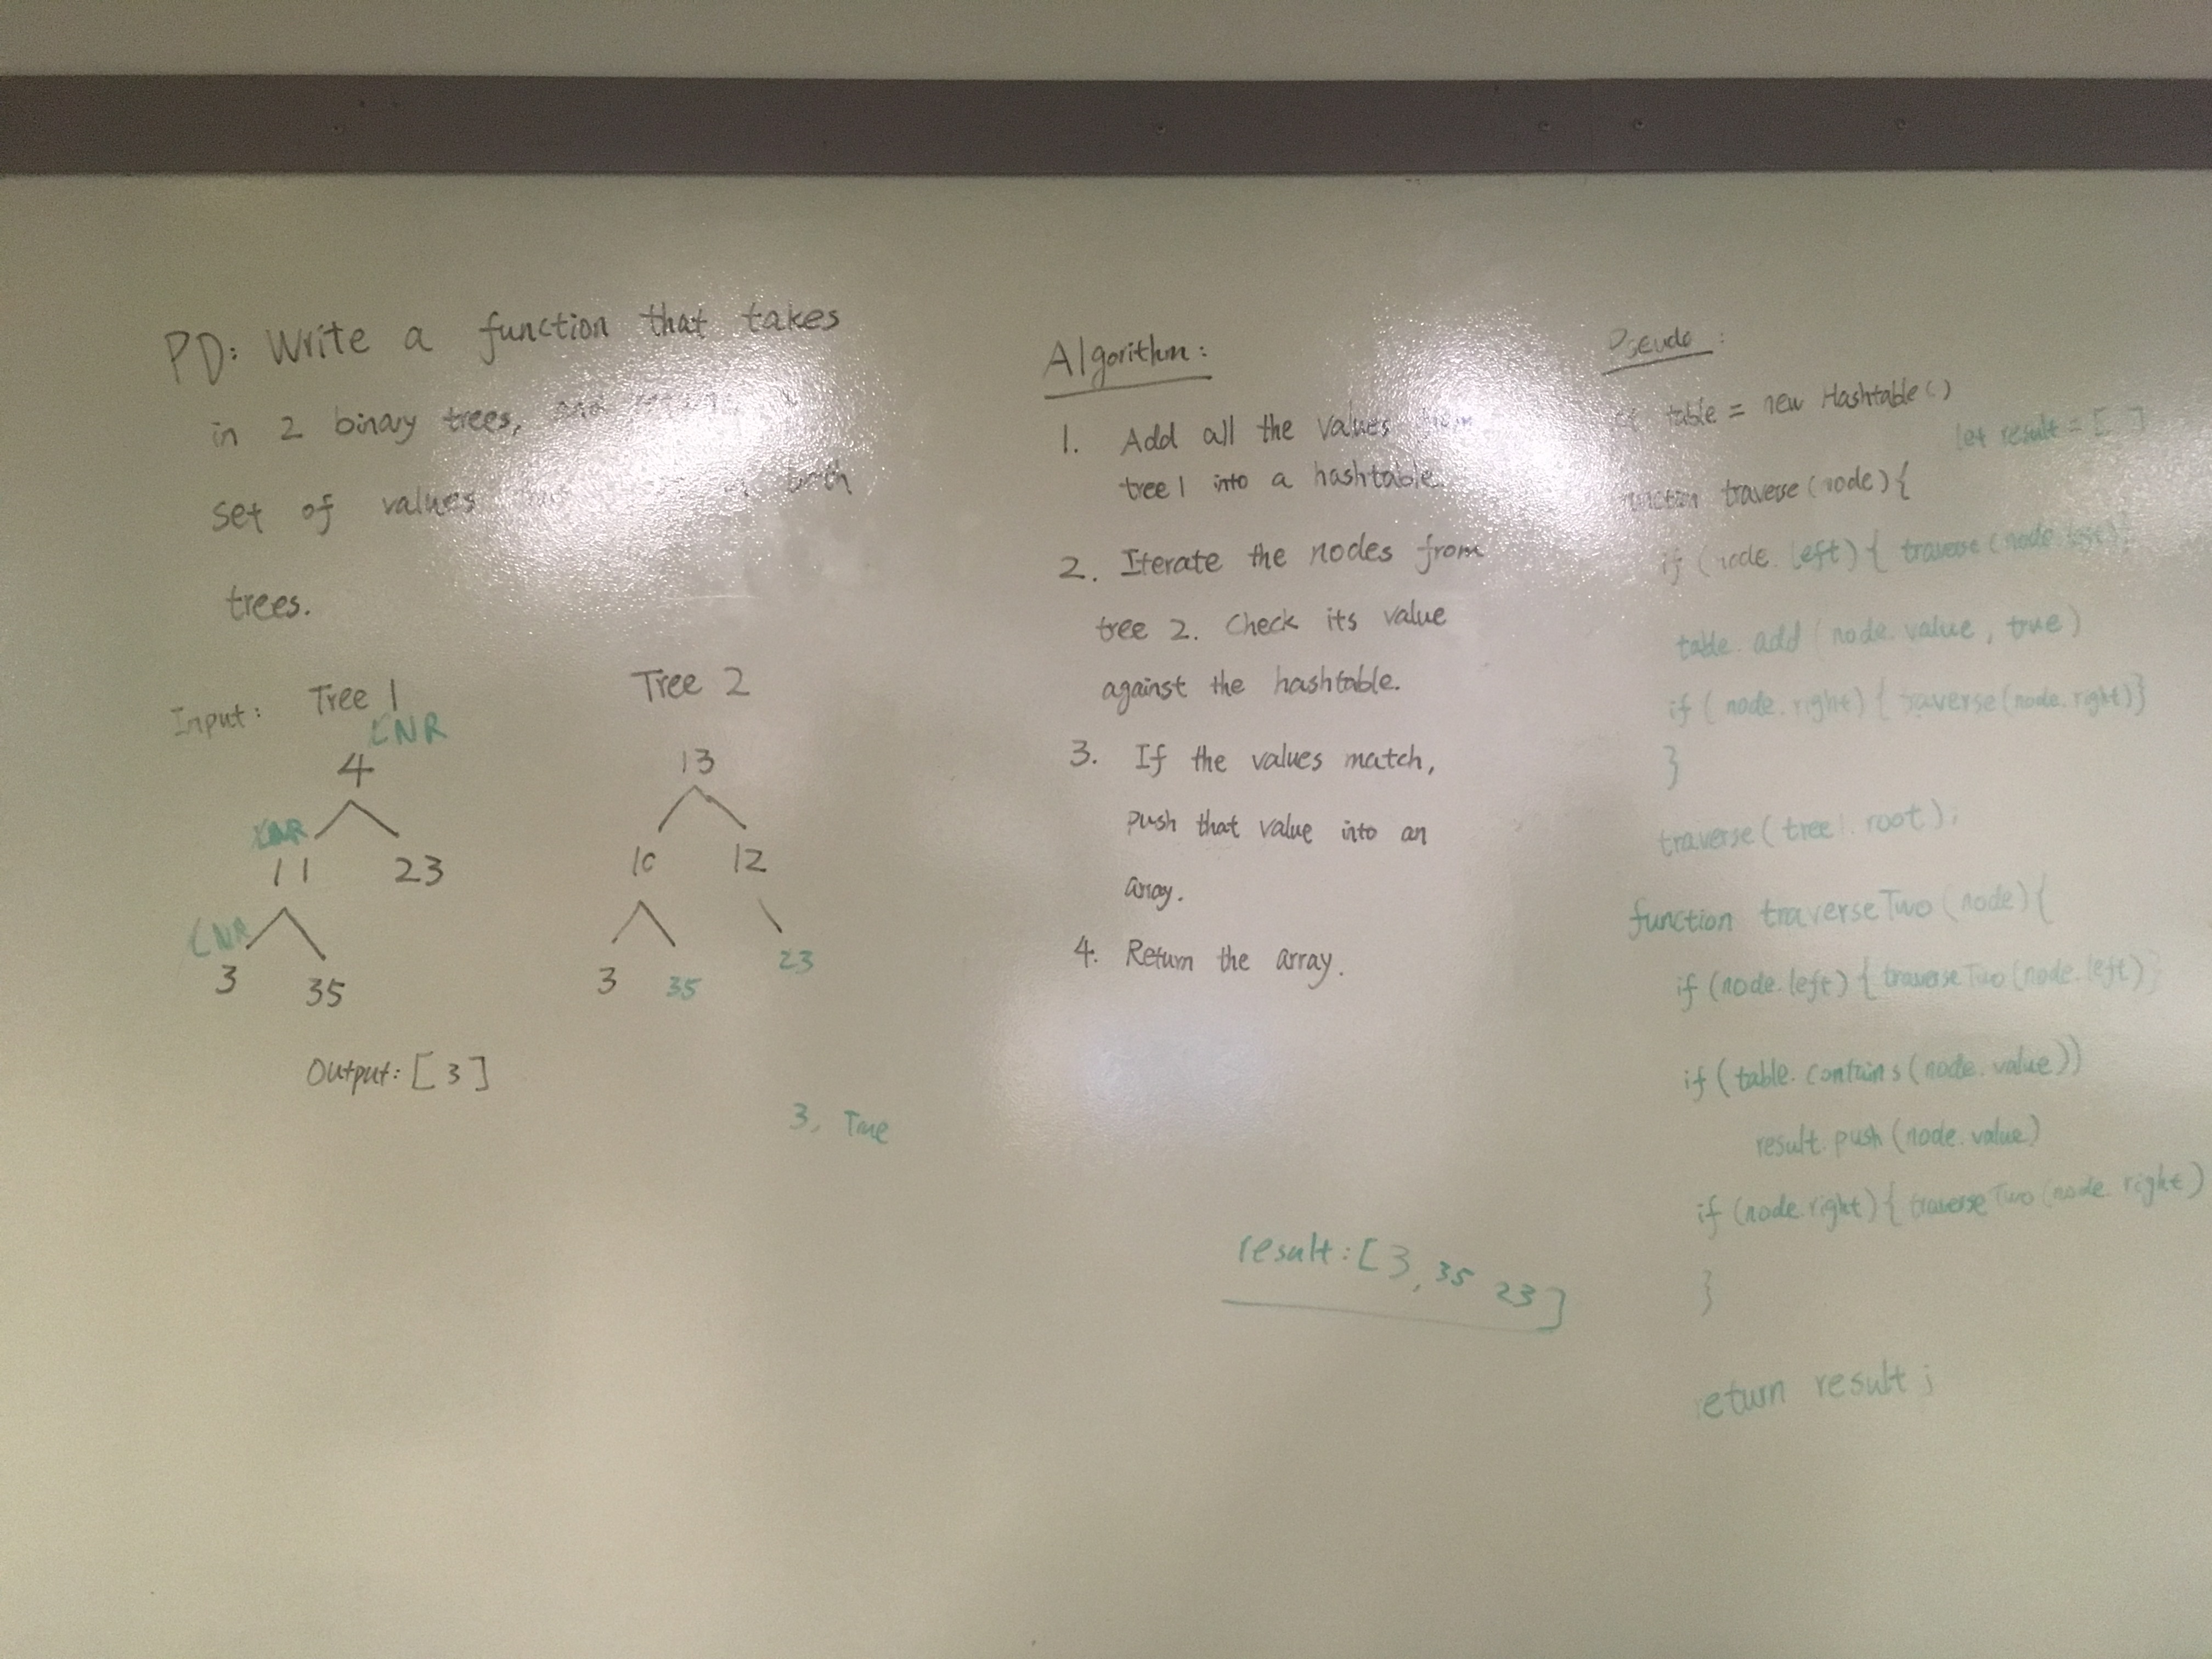 PD: Write a function that takes
in 2 binary trees, and
set of values both
trees.
Input: Tree 1
LNR
4
LNR
11 23
LNR
3 35
Tree 2
13
10 12
3 35 23
Output: [ 3 ]
3, True
Algorithm:
1. Add all the values from
tree 1 into a hashtable.
2. Iterate the nodes from
tree 2. Check its value
against the hashtable.
3. If the values match,
push that value into an
array.
4. Return the array.
result: [ 3, 35 23 ]
Pseudo :
table = new Hashtable()
let result = [ ]
function traverse (node) {
if (node. left) { traverse (node. left)}
table. add (node. value, true)
if ( node. right) { traverse (node. right)}
}
traverse ( tree1. root);
function traverseTwo (node) {
if (node. left) { traverseTwo (node. left)}
if ( table. contains (node. value))
result. push (node. value)
if (node. right) { traverseTwo (node. right)
}
return result ;